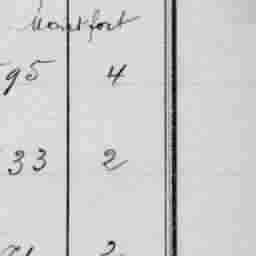 Montfort
95 4
33 2